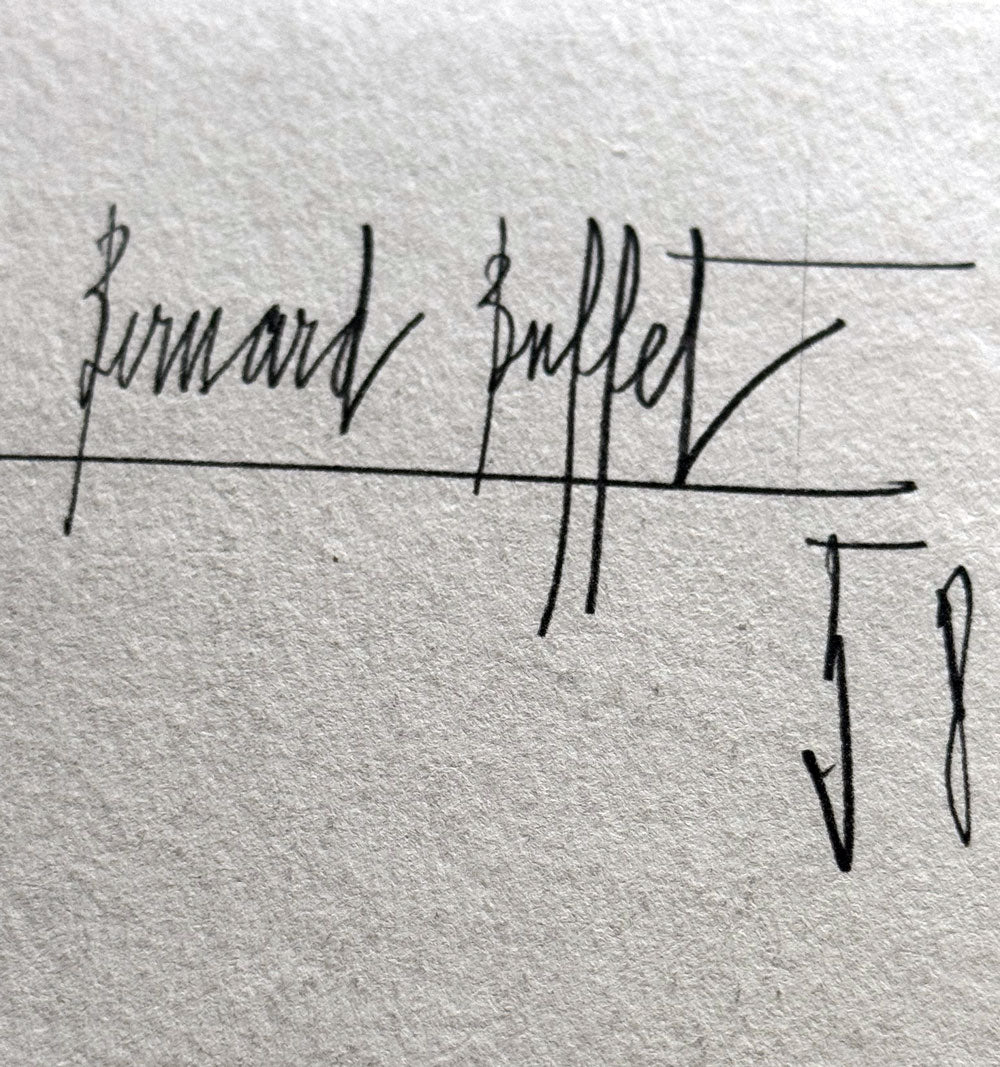 Bernard Buffet
58